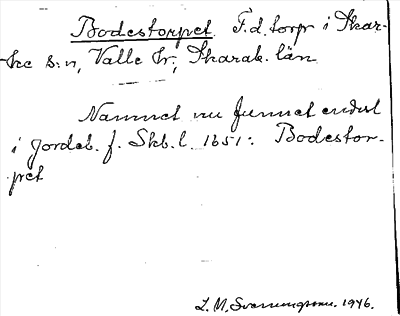 Bodestorpet. F.d. torp i Skar-
ke s:n, Valle hr, Skarab. län
Namnet nu funnet endast
i Jordeb. f. Skb. l. 1651: Bodestor-
pet
L. M. Svenningsson. 1946.